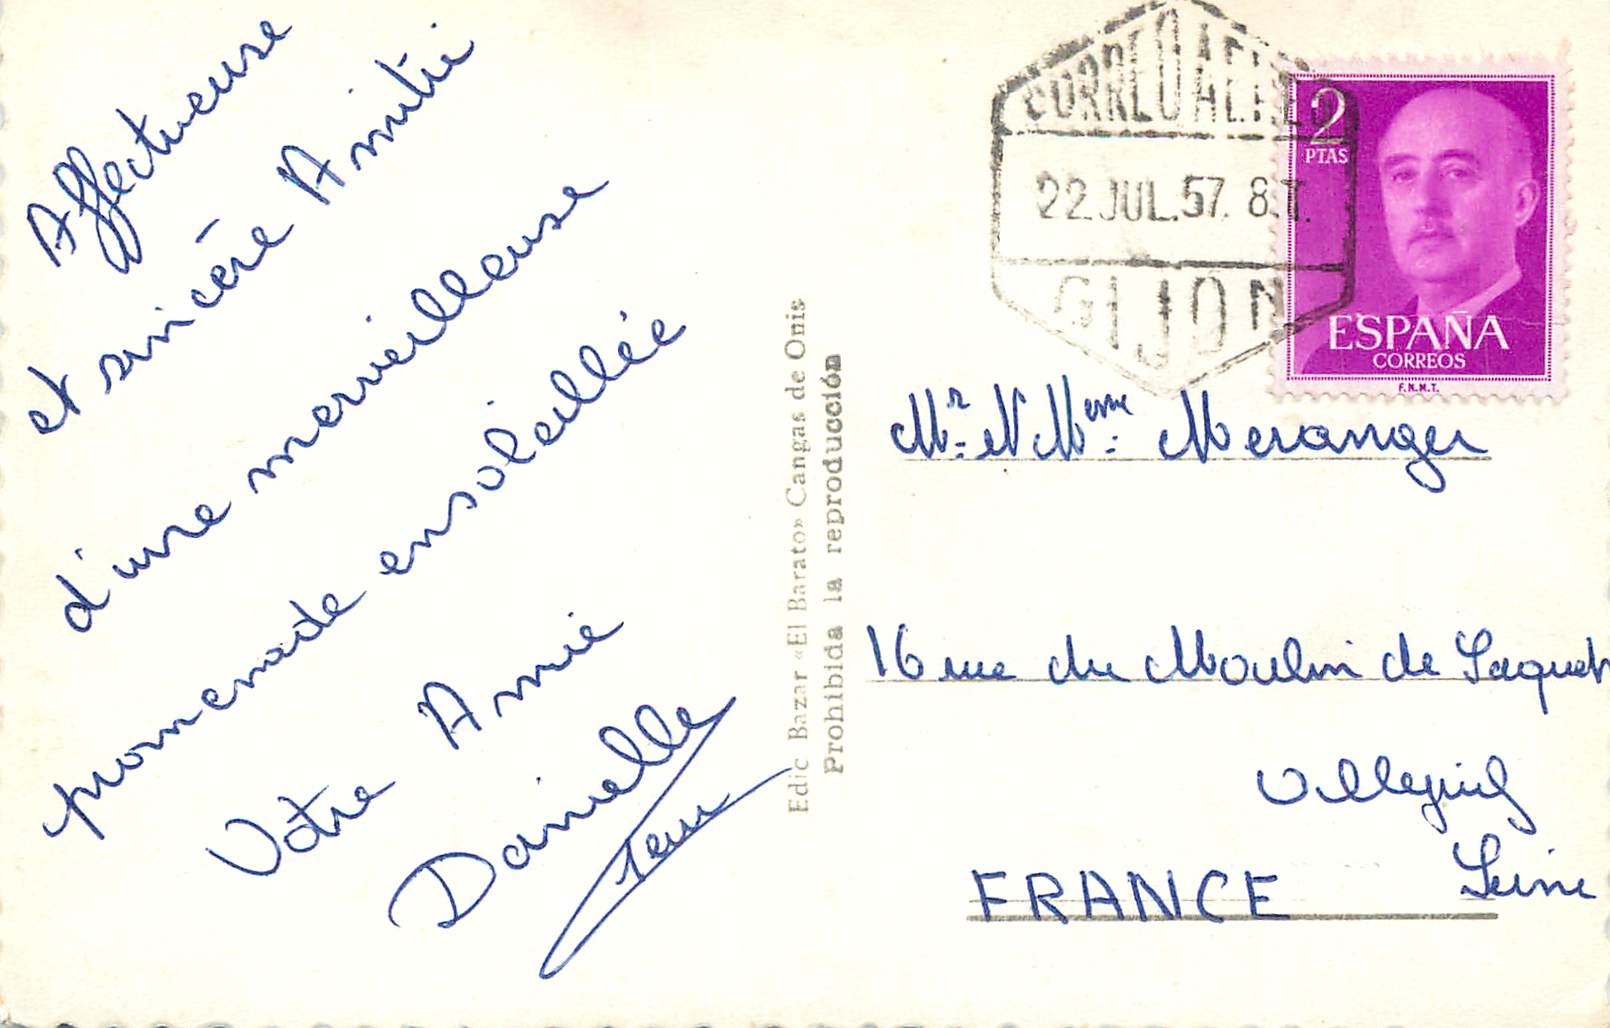 Affectueuse
et sincère Amitié
d'une merveilleuse
promenade ensoleillée
Votre Amie
Danielle
Edic Bazar «El Barato» Cangas de Onis
Prohibida la reproducción
CORREO AEREO
22.JUL.57. 8.T.
GIJON
2
PTAS
ESPAÑA
CORREOS
F.N.M.T.
Mr. et Mme. Meranger
16 rue du Moulin de Saquet
Villejuif
Seine
FRANCE